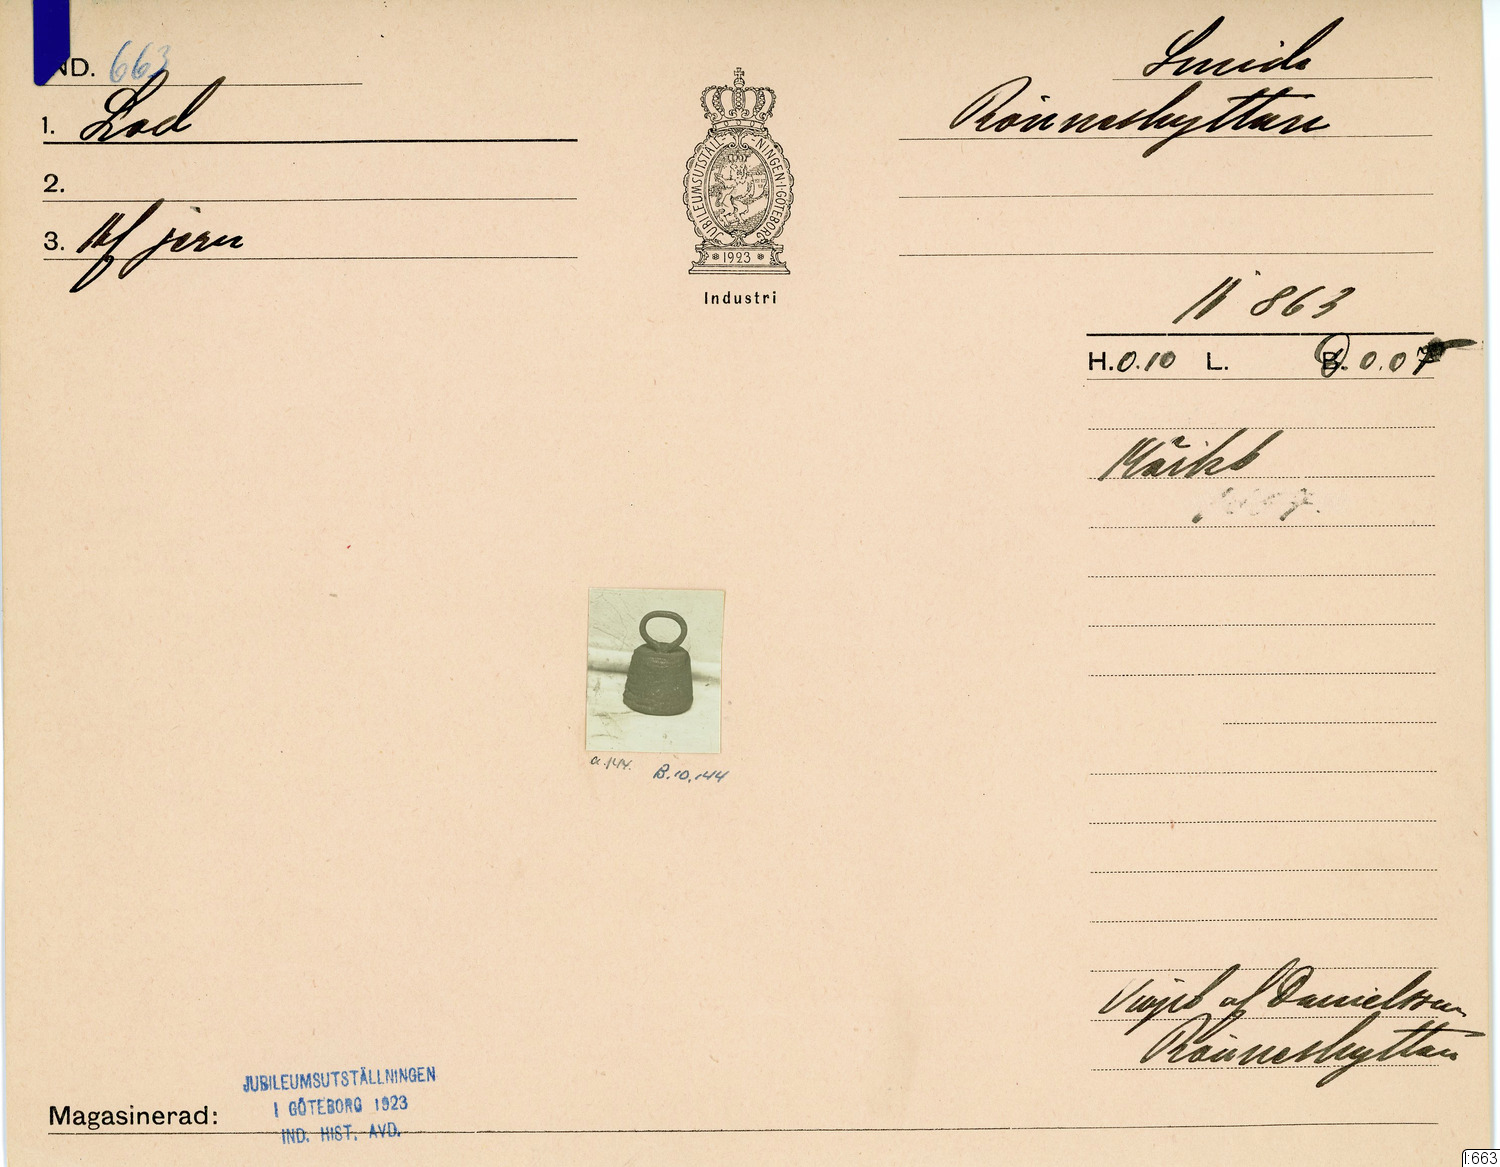 IND. 663
1. Lod
2.
3. Af jern
JUBILEUMSUTSTÄLLNINGEN I GÖTEBORG
1923
Industri
Smide
Rönneshyttan
863
H. 0.10 L. B. 0.07
Märkt
a.144. B.10,144
af Danielsson
Rönneshyttan
JUBILEUMSUTSTÄLLNINGEN
I GÖTEBORG 1923
IND. HIST. AVD.
Magasinerad:
I:663